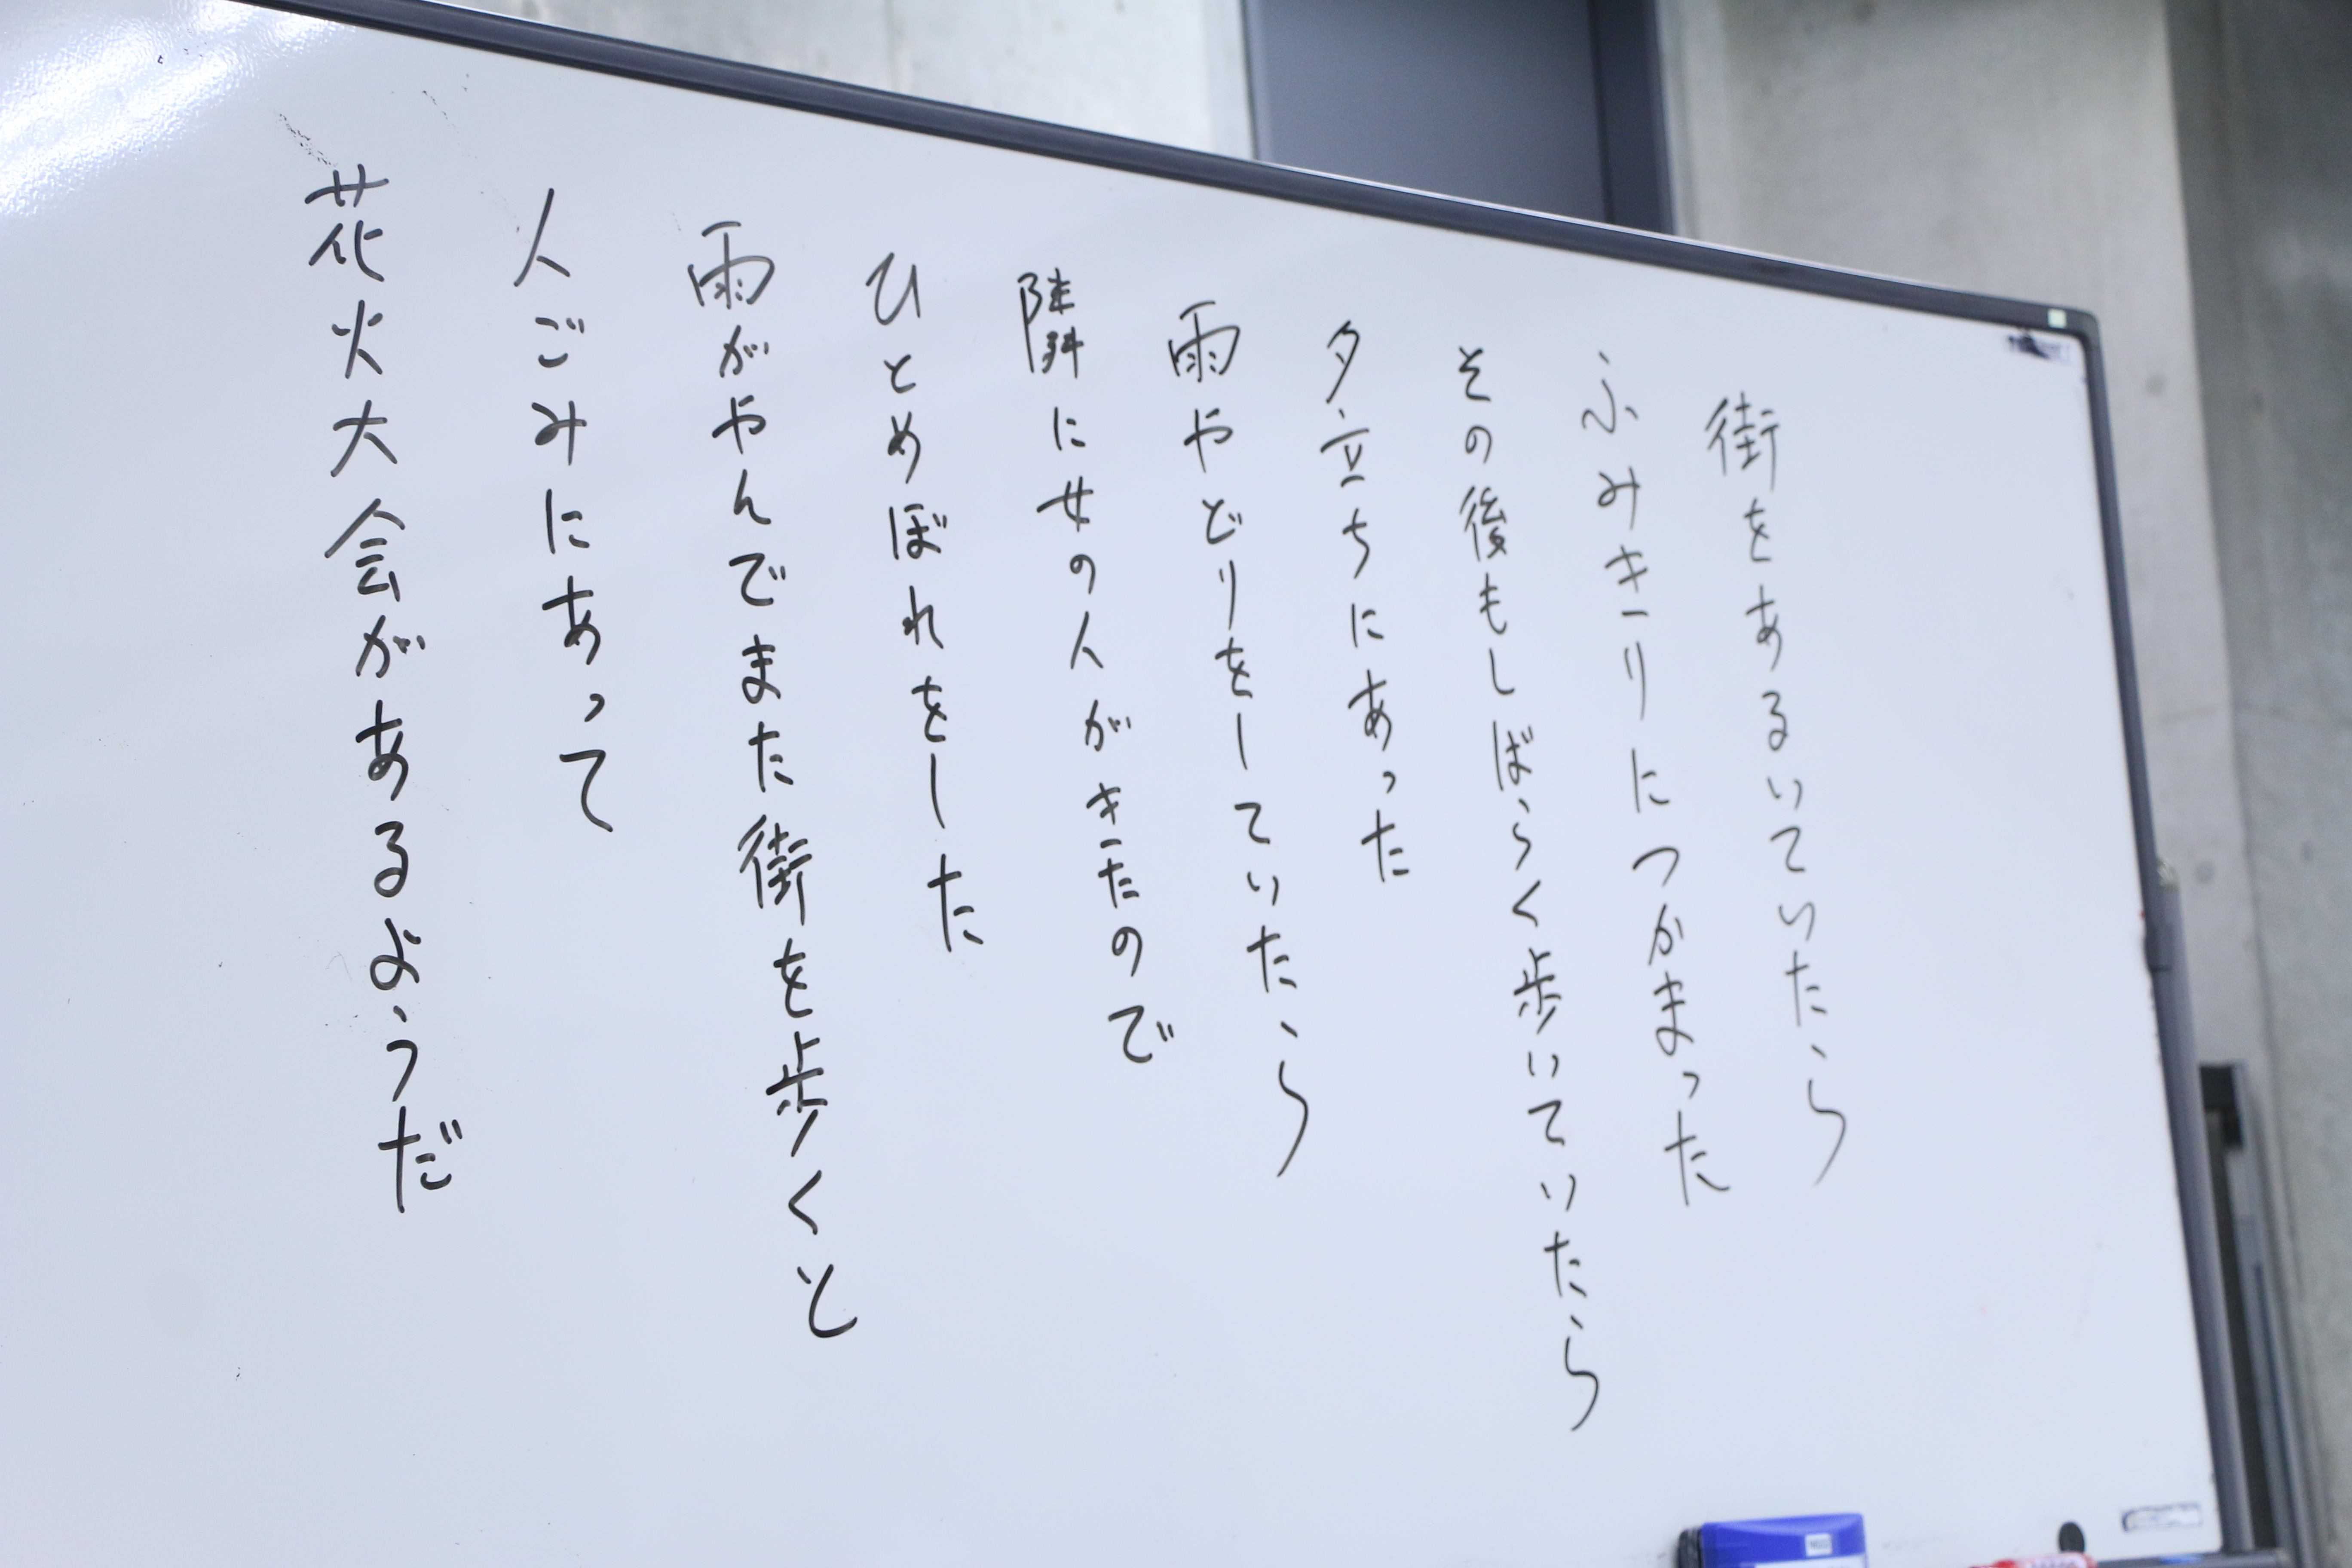 街をあるいていたら
ふみきりにつかまった
その後もしばらく歩いていたら
夕立ちにあった
雨やどりをしていたら
隣に女の人がきたので
ひとめぼれをした
雨がやんでまた街を歩くと
人ごみにあって
花火大会があるようだ